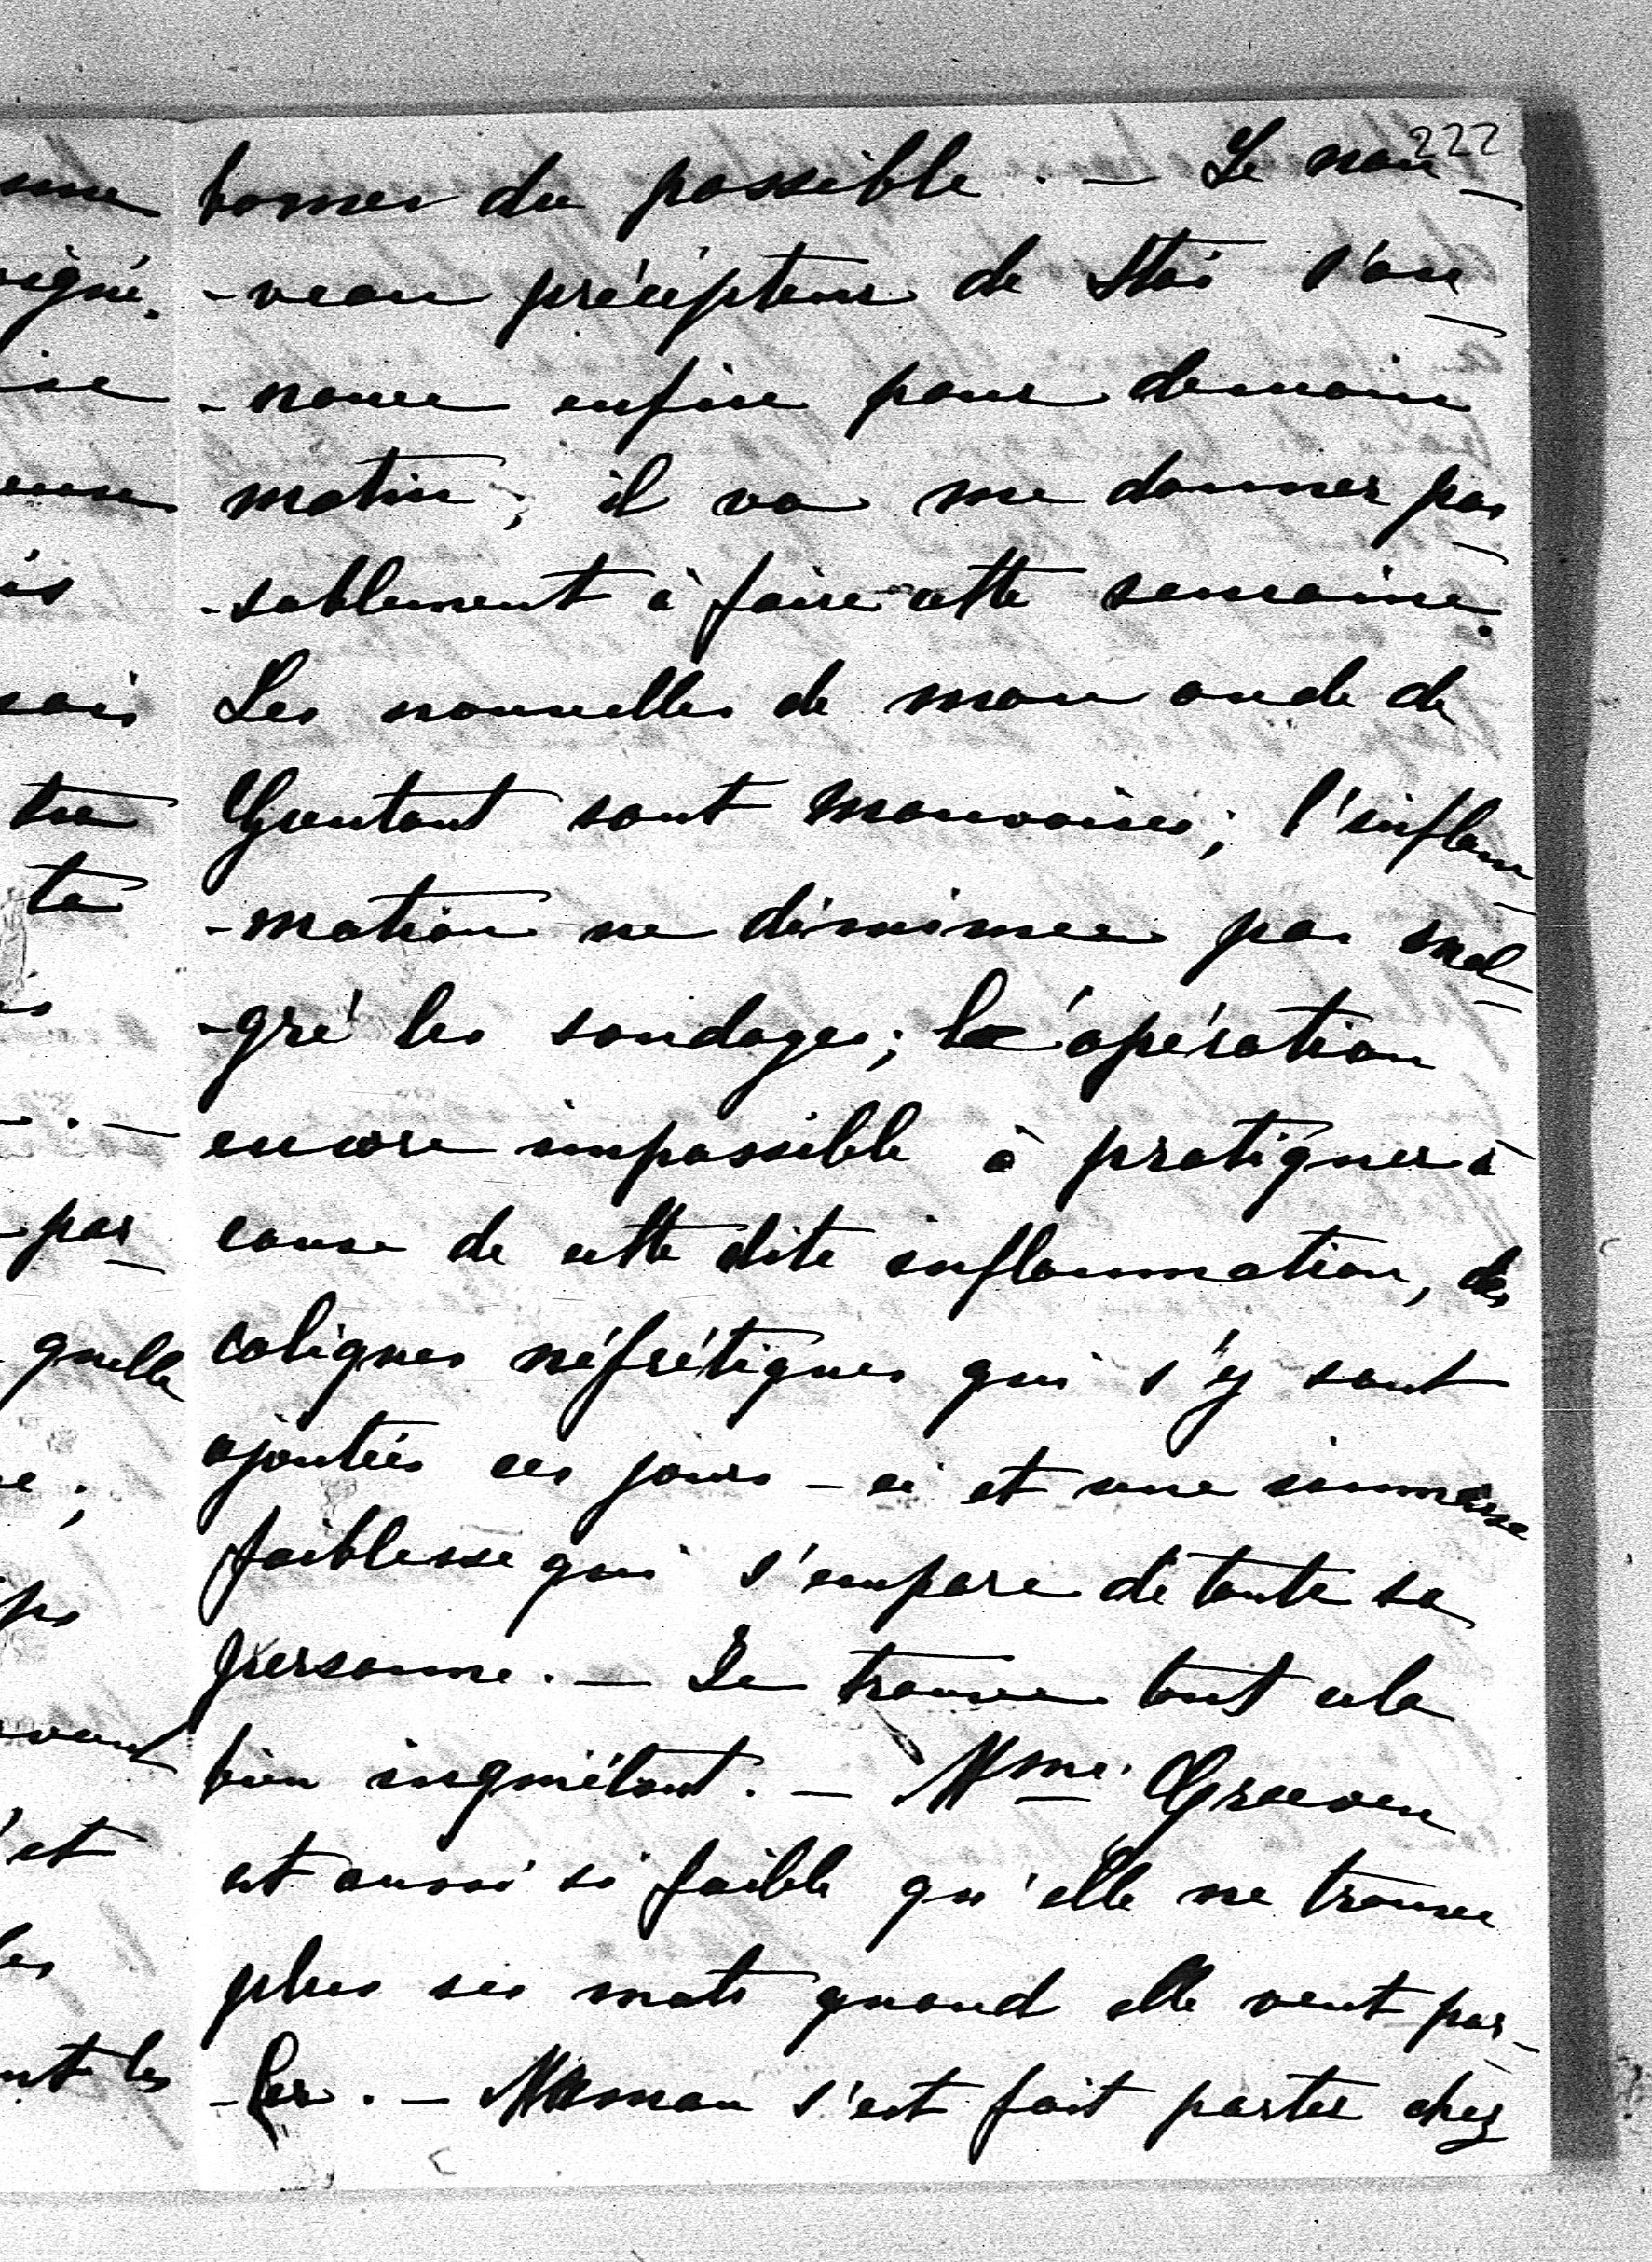 222
bornes du possible. — Le nou-
-veau précepteur de Stas s'an-
-nonce enfin pour demain
matin; il va me donner pas-
-sablement à faire cette semaine.
Les nouvelles de mon oncle de
Gontaut sont mauvaises; l'inflam-
-mation ne diminue pas mal-
-gré les sondages; l'opération
encore impossible à pratiquer à
cause de cette dite inflammation, des
coliques néfrétiques qui s'y sont
ajoutées ces jours-ci et une immense
faiblesse qui s'empare de toute sa
personne. — Je trouve tout cela
bien inquiétant. — Mme Graeven
est aussi si faible qu'elle ne trouve
plus ses mots quand elle veut par-
-ler. — Maman s'est fait porter chez